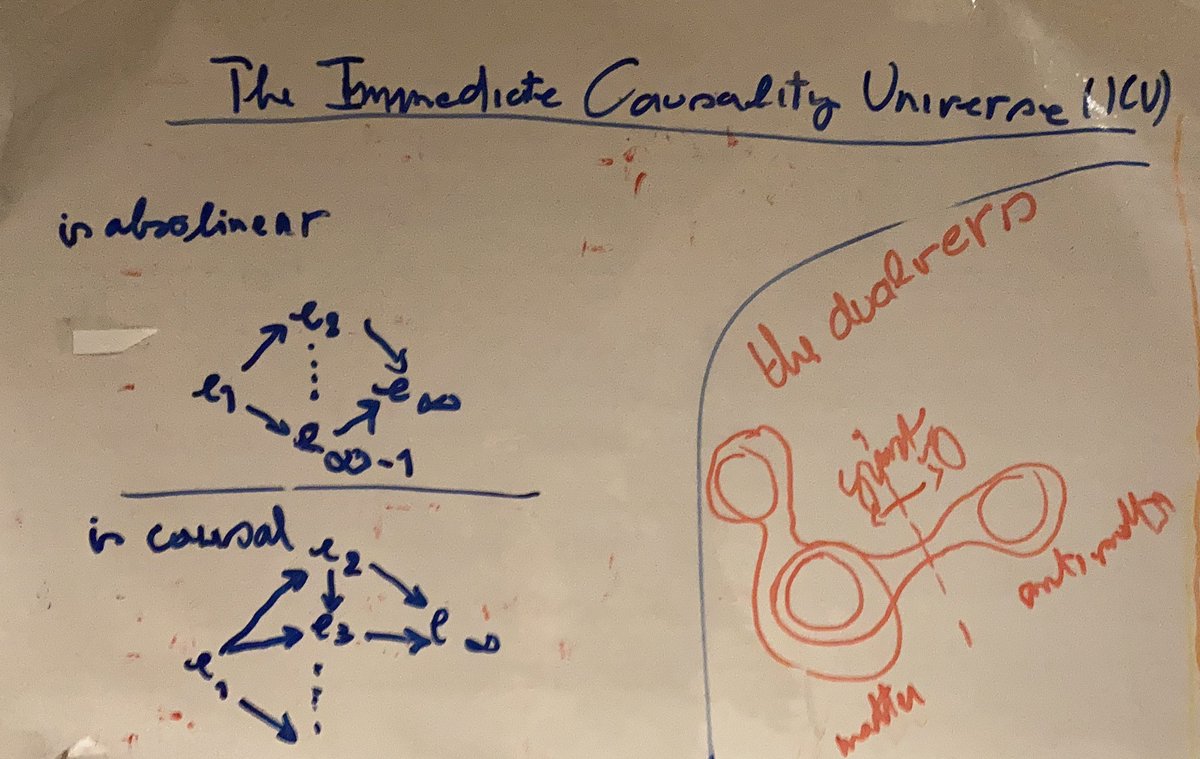 The Immediate Causality Universe (ICU)
is absolinear
e₂
e₁
e∞
e∞-1
is causal
e₂
e₃
e∞
e₁
the dualvers
matter